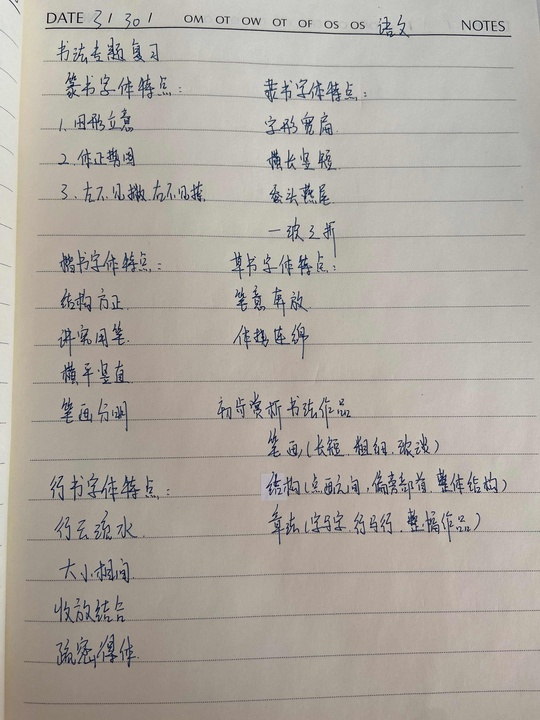 DATE 3 / 30 / OM OT OW OT OF OS OS 语文 NOTES
书法专题复习
篆书字体特点：
1. 因形立意
2. 体正势圆
3. 左不见撇,右不见捺.
隶书字体特点：
字形宽扁
横长竖短
蚕头燕尾
一波三折
楷书字体特点：
结构方正
讲究用笔
横平竖直
笔画分明
草书字体特点：
笔意奔放
体势连绵
初步赏析书法作品
笔画(长短、粗细、浓淡)
结构(点画之间,偏旁部首、整体结构)
章法(字与字、行与行、整幅作品)
行书字体特点：
行云流水
大小相间
收放结合
疏密得体